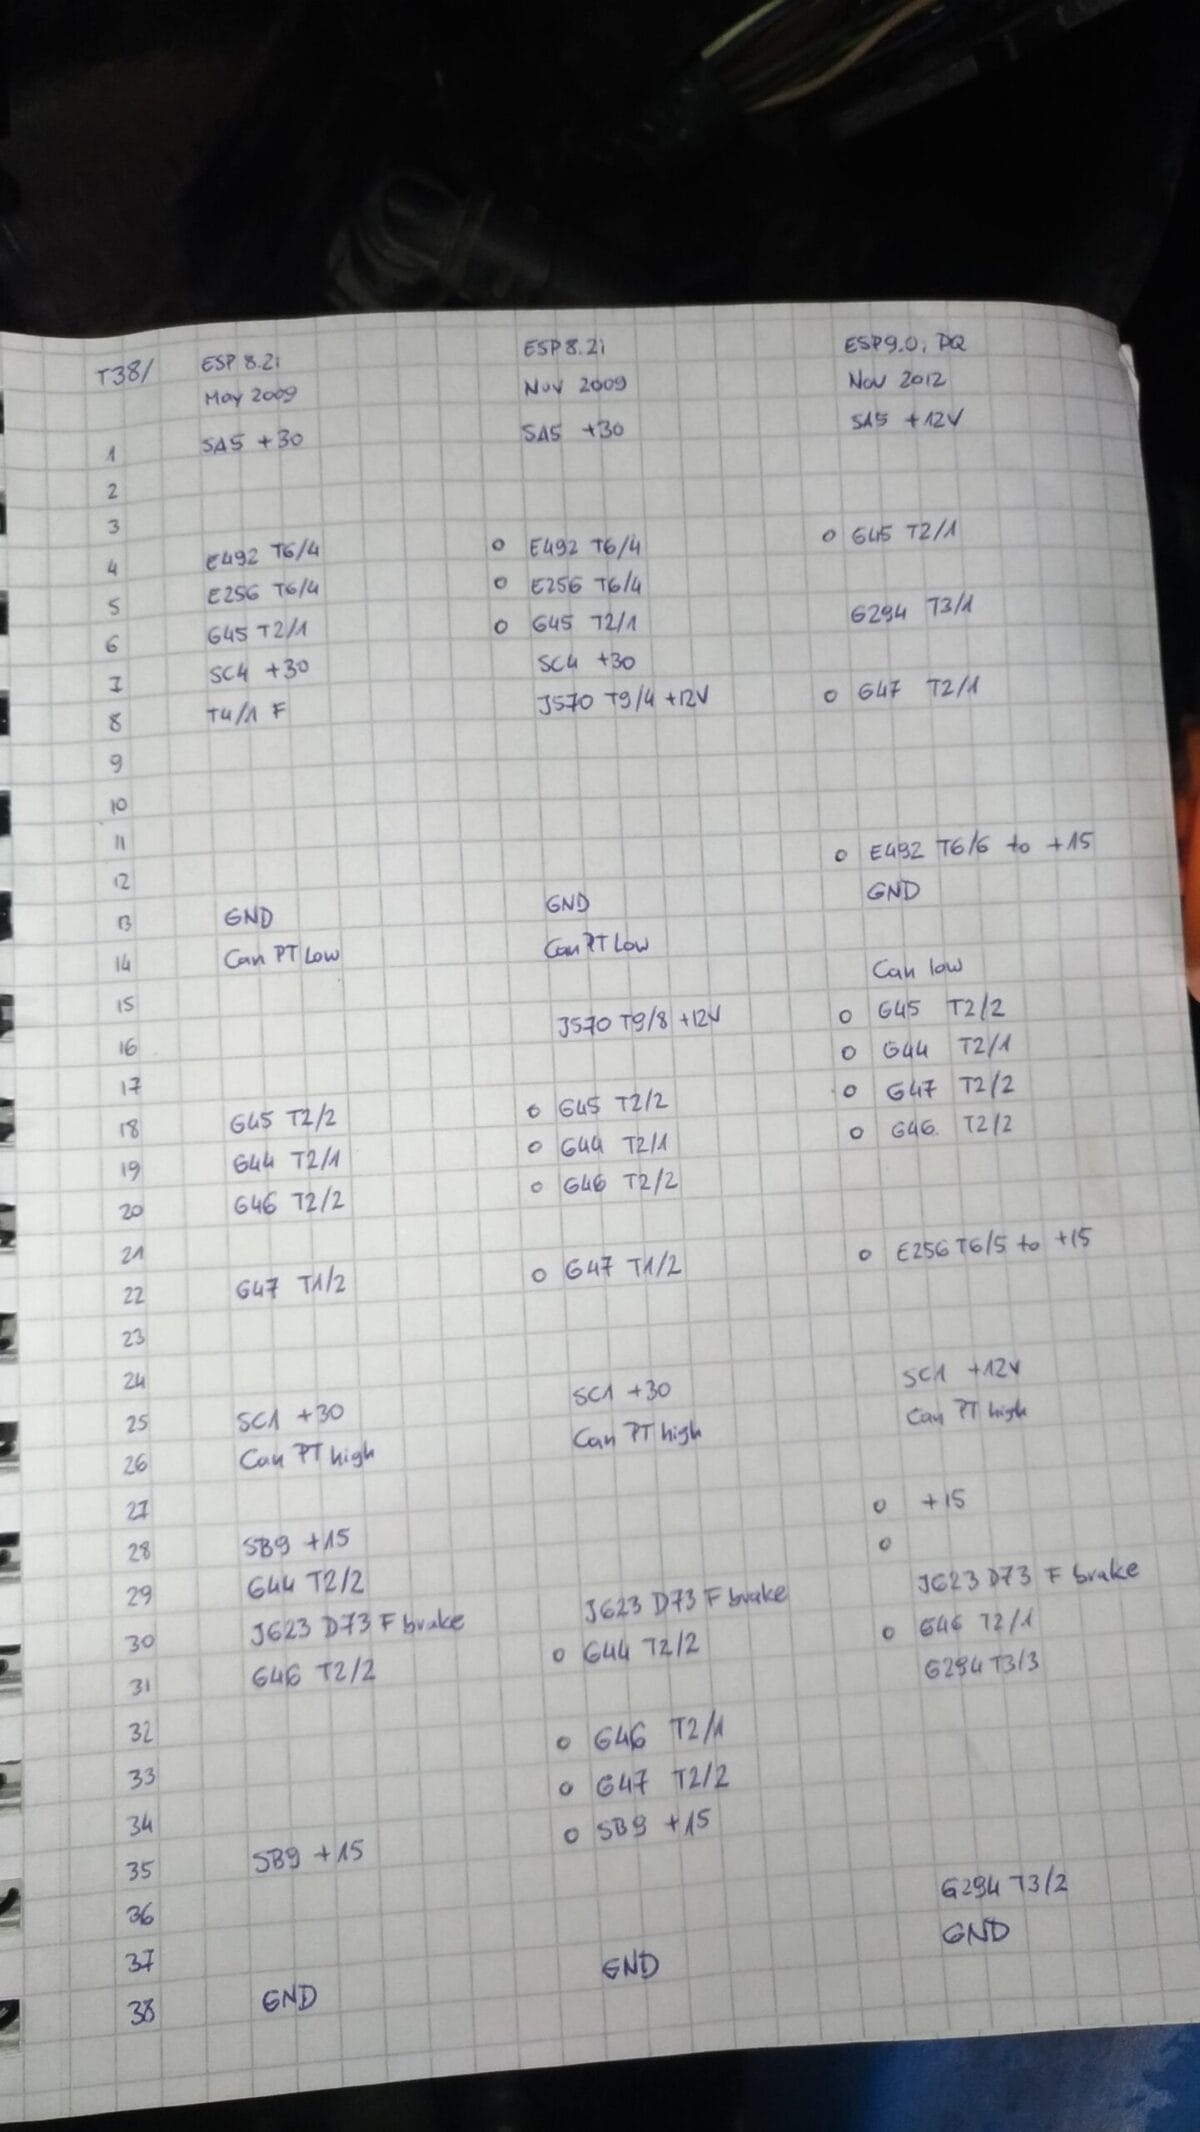 T38/ ESP 8.2i ESP 8.2i ESP9.0i PQ
May 2009 Nov 2009 Nov 2012
1 SA5 +30 SA5 +30 SA5 +12V
2
3
4 E492 T6/4 o E492 T6/4 o G45 T2/1
5 E256 T6/4 o E256 T6/4
6 G45 T2/1 o G45 T2/1 G294 T3/1
7 SC4 +30 SC4 +30
8 T4/1 F J570 T9/4 +12V o G47 T2/1
9
10
11
12 o E492 T6/6 to +15
13 GND GND GND
14 Can PT Low Can PT Low
15 Can low
16 J570 T9/8 +12V o G45 T2/2
17 o G44 T2/1
18 G45 T2/2 o G45 T2/2 o G47 T2/2
19 G44 T2/1 o G44 T2/1 o G46 T2/2
20 G46 T2/2 o G46 T2/2
21
22 G47 T1/2 o G47 T1/2 o E256 T6/5 to +15
23
24
25 SC1 +30 SC1 +30 SC1 +12V
26 Can PT high Can PT high Can PT high
27
28 SB9 +15 o +15
29 G44 T2/2 o
30 J623 D73 F brake J623 D73 F brake J623 D73 F brake
31 G46 T2/2 o G44 T2/2 o G46 T2/1
32 G294 T3/3
33 o G46 T2/1
34 o G47 T2/2
35 SB9 +15 o SB9 +15
36
37 G294 T3/2
38 GND GND GND